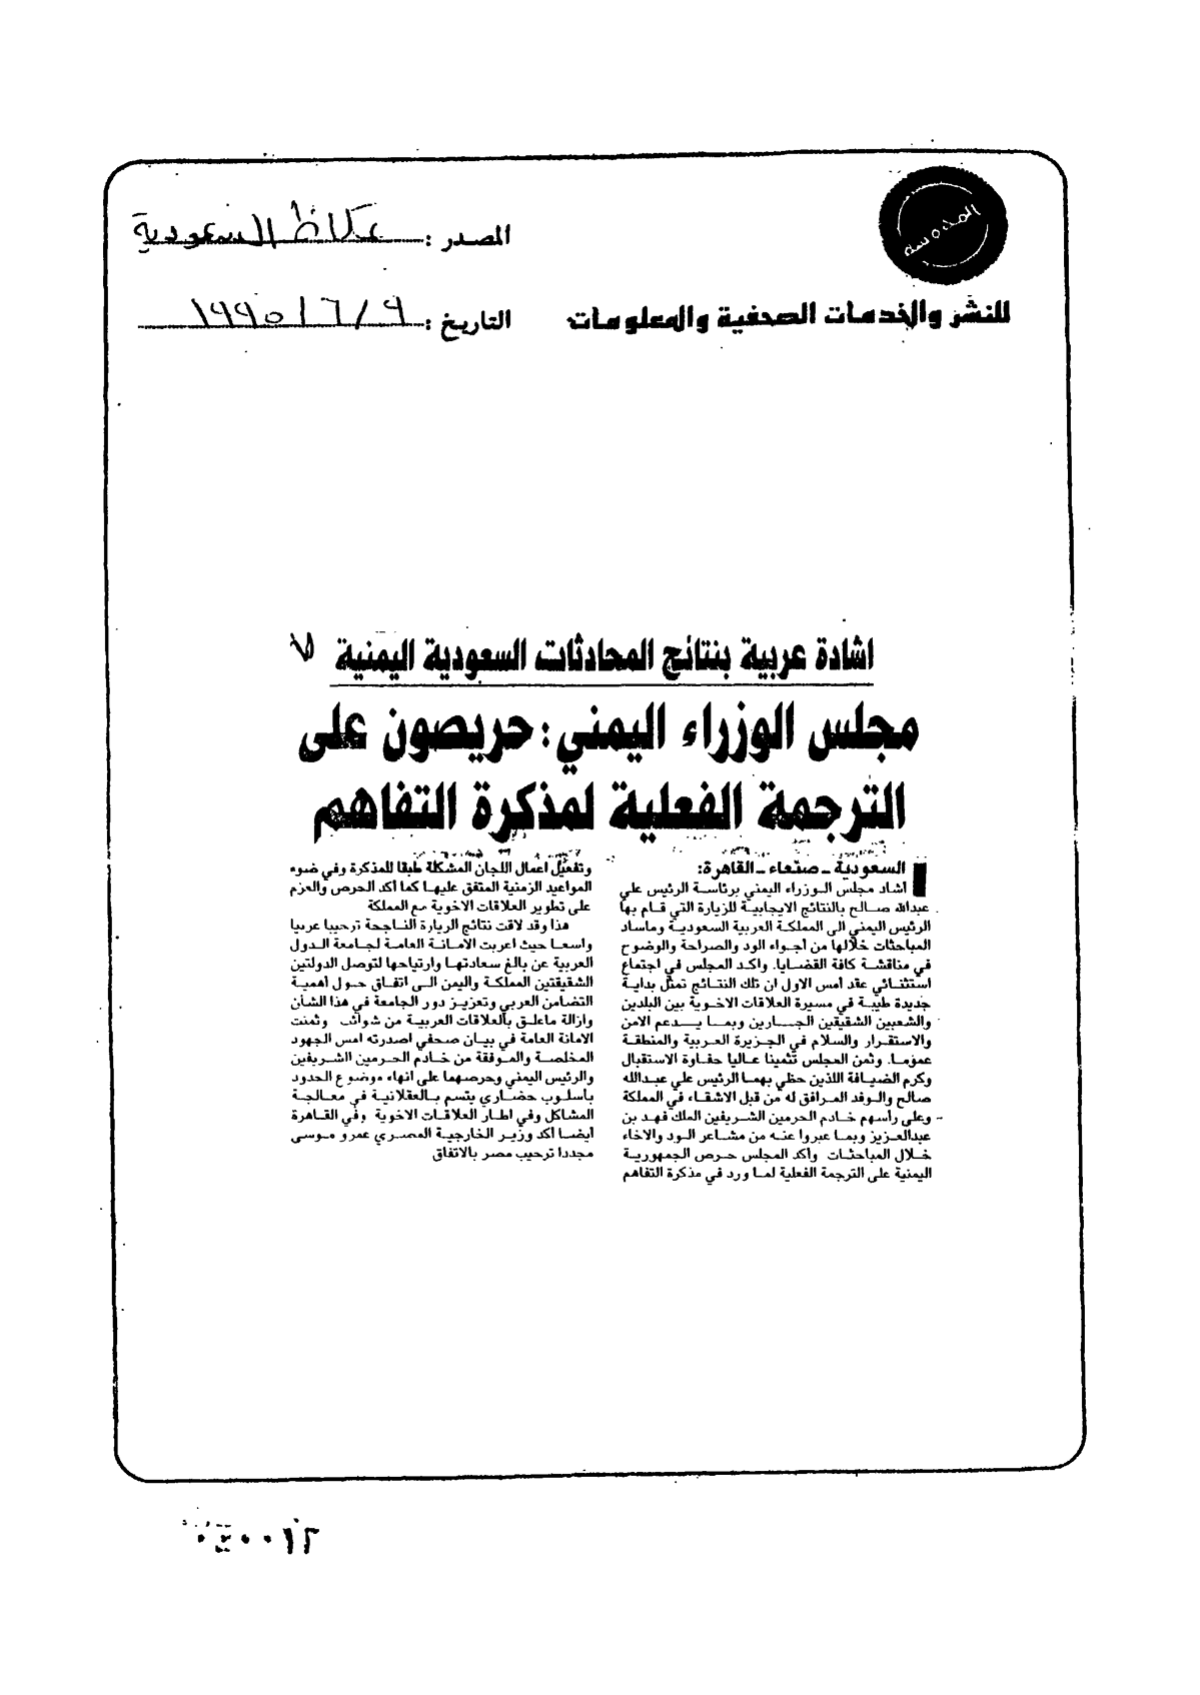 المصدر : عكاظ السعودية
للنشر والخدمات الصحفية والمعلومات
التاريخ : ٩ / ٦ / ١٩٩٥
اشادة عربية بنتائج المحادثات السعودية اليمنية
مجلس الوزراء اليمني : حريصون على
الترجمة الفعلية لمذكرة التفاهم
السعودية ـ صنعاء ـ القاهرة:
أشاد مجلس الوزراء اليمني برئاسة الرئيس علي
عبدالله صالح بالنتائج الايجابية للزيارة التي قام بها
الرئيس اليمني الى المملكة العربية السعودية وماساد
المباحثات خلالها من أجواء الود والصراحة والوضوح
في مناقشة كافة القضايا. واكد المجلس في اجتماع
استثنائي عقد أمس الاول ان تلك النتائج تمثل بداية
جديدة طيبة في مسيرة العلاقات الاخوية بين البلدين
والشعبين الشقيقين الجارين وبما يدعم الامن
والاستقرار والسلام في الجزيرة العربية والمنطقة
عموما. وثمن المجلس تثمينا عاليا حفاوة الاستقبال
وكرم الضيافة اللذين حظي بهما الرئيس علي عبدالله
صالح والوفد المرافق له من قبل الاشقاء في المملكة
وعلى رأسهم خادم الحرمين الشريفين الملك فهد بن
عبدالعزيز وبما عبروا عنه من مشاعر الود والاخاء
خلال المباحثات وأكد المجلس حرص الجمهورية
اليمنية على الترجمة الفعلية لما ورد في مذكرة التفاهم
وتفعيل اعمال اللجان المشكلة طبقا للمذكرة وفي ضوء
المواعيد الزمنية المتفق عليها كما أكد الحرص والعزم
على تطوير العلاقات الاخوية مع المملكة
هذا وقد لاقت نتائج الزيارة الناجحة ترحيبا عربيا
واسعا حيث اعربت الامانة العامة لجامعة الدول
العربية عن بالغ سعادتها وارتياحها لتوصل الدولتين
الشقيقتين المملكة واليمن الى اتفاق حول أهمية
التضامن العربي وتعزيز دور الجامعة في هذا الشأن
وازالة ماعلق بالعلاقات العربية من شوائب وثمنت
الامانة العامة في بيان صحفي اصدرته امس الجهود
المخلصة والموفقة من خادم الحرمين الشريفين
والرئيس اليمني وحرصهما على انهاء موضوع الحدود
باسلوب حضاري يتسم بالعقلانية في معالجة
المشاكل وفي اطار العلاقات الاخوية وفي القاهرة
أيضا أكد وزير الخارجية المصري عمرو موسى
مجددا ترحيب مصر بالاتفاق